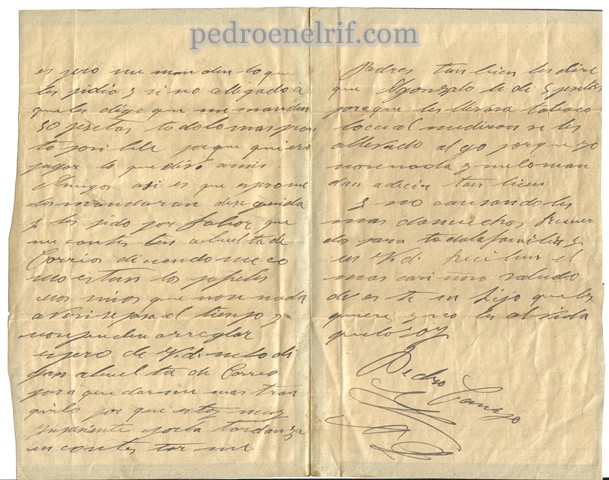 pedroenelrif.com
espero me manden lo que
les pidia y si no allegado a
que les dige que me manden
30 pesetas todo lo mas pron
to posible porque quiero
pagar lo que devo a mis
Amigos asi es que espero me
lo mandaran de seguida
y les pido por fabor que
me contesteis a buelta de
Correo diciendome co
mo estan los papeles
mios que no se nada
a ver si pasa el tiempo y
no se pueden arreglar
espero de Vd. me lo di
gan a buelta de Correo
para quedarme mas tran
quilo por que estoy muy
inpaciente por la tardanza
en contestarme
Padres tan bien les dire
que Gonzalo le di 3 pesetas
para que les llevara tabaco
lo cual me dicen se les
a llevado al yo por que yo
no se nada y me lo man
dan a decir tan bien
Y no cansandoles
mas da muchos Recuer
dos para toda la familia y
es Vd. Reciban el
mas cariñoso saludo
de este su hijo que les
quiere y no les olvida
que lo soy
Pedro